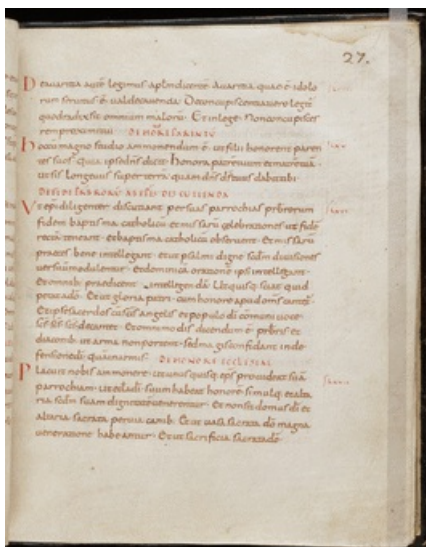 27.
De avaritia autē legimus
avaritia quae ē idolo
rum servitus ē valde cavenda
quod radix sit omnium malorū Et in lege Non concupisces
rem proximi tui DE HONORE PARENTV
hoc cū magno studio ammonendum ē ut filii honorent paren
tes suos quia ipse dn̄s dicit honora patrem tuum et matrem
ut sis longevus super terrā quam dn̄s dabit tibi
Ut ep̄i diligenter discutiant per suas parrochias prb̄rorum
fidem baptisma catholicū et missarū celebrationes ut fidē
rectā teneant et baptisma catholicū observent et missarū
praeces bene intellegant et ut psalmi digne scdm divisiones
versuū modulentur et dominicā orationē ipsi intellegant
et omnib; praedicent intellegendā Ut quisq; sciat quid
petat a dō Et ut gloria patri cum honore apud omnes cantet
Et ipse sacerdos cū scīs angelis et populo dī comuni voce
scs̄ scs̄ scs̄ decantet Et omnimodis dicendum ē prb̄ris et
diaconib; ut arma non portent sed magis confidant in de
fensione dī quā in armis DE HONORE ECCLESIAE
Placuit nobis ammonere ut unusquisq; ep̄s provideat suā
parrochiam ut ecclā dī suum habeat honorē simulq; et alta
ria scdm suam dignitatē venerentur Et non sit domus dī et
altaria sacrata pervia canib; Et ut vasa sacrata dō magna
veneratione habeantur Et ut sacrificia sacrata dō